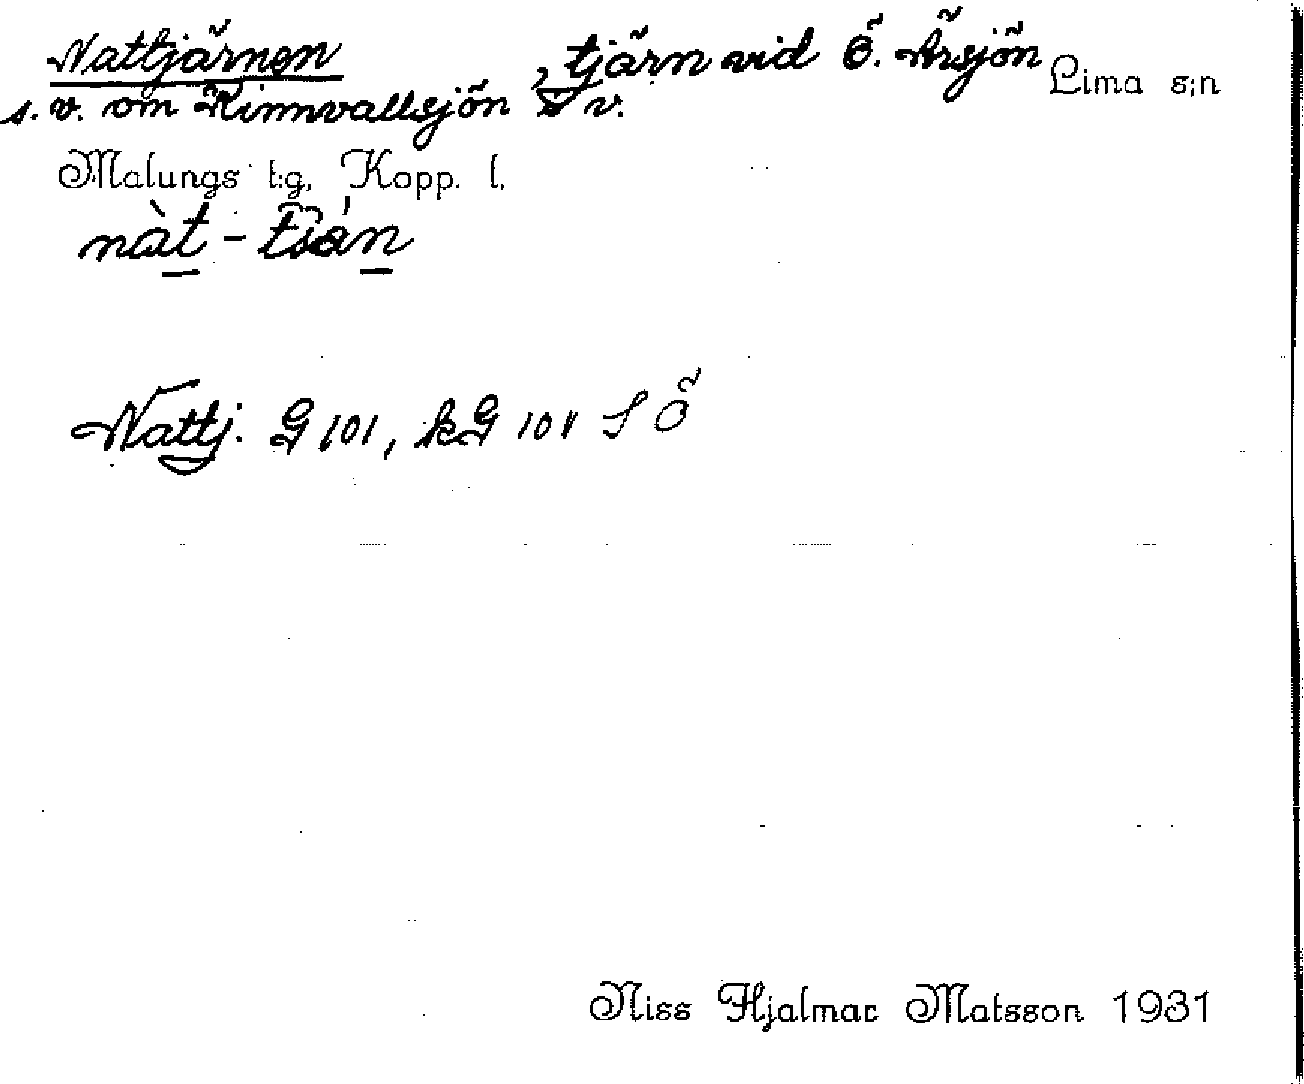 Nattjärnen, tjärn vid Ö. Årsjön Lima s:n
s.v. om Rinnvallsjön v.
Malungs t:g, Kopp. l.
nàt-
Nattj. G 101, kG 101 S Ö
Niss Hjalmar Matsson 1931